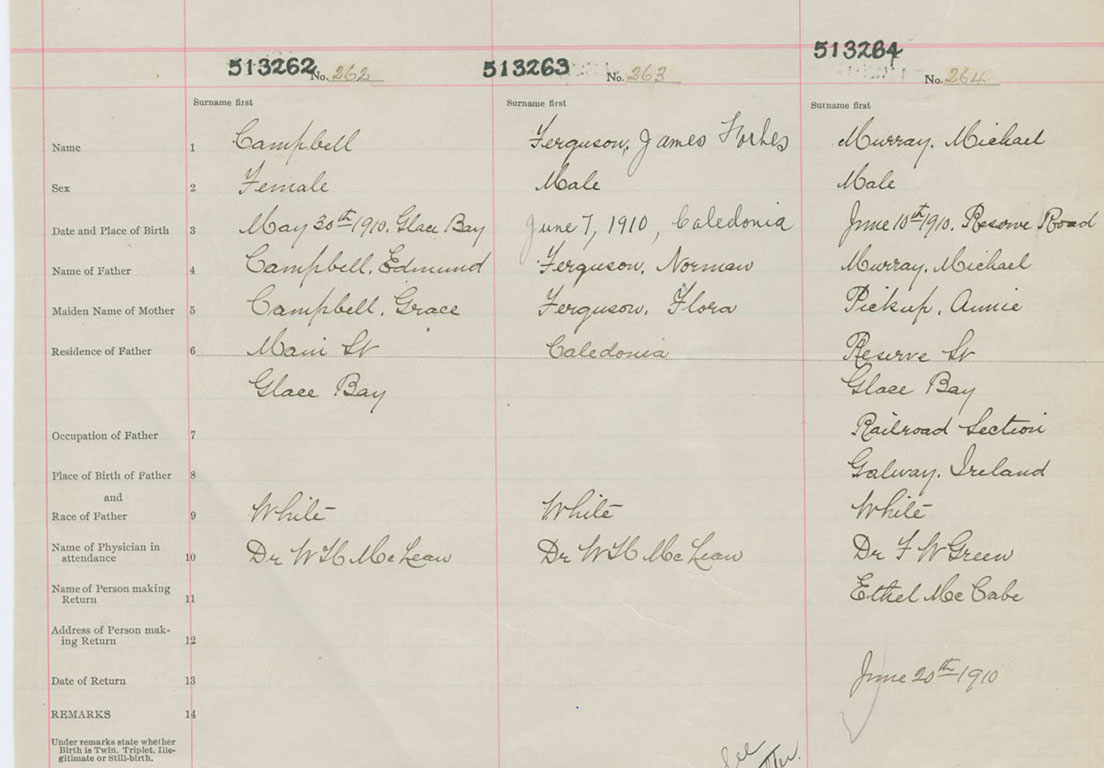 513262 No. 262 513263 No. 263 513264 No. 264
Surname first Surname first Surname first
Name 1 Campbell Ferguson, James Forbes Murray. Michael
Sex 2 Female Male Male
Date and Place of Birth 3 May 30th 1910. Glace Bay June 7, 1910, Caledonia June 10th 1910. Reserve Road
Name of Father 4 Campbell. Edmund Ferguson. Norman Murray. Michael
Maiden Name of Mother 5 Campbell. Grace Ferguson. Flora Pickup. Annie
Residence of Father 6 Main St Caledonia Reserve St
Glace Bay Glace Bay
Occupation of Father 7 Railroad Section
Place of Birth of Father 8 Galway. Ireland
and
Race of Father 9 White White White
Name of Physician in
attendance 10 Dr W H McLean Dr W H McLean Dr F W Green
Name of Person making
Return 11 Ethel McCabe
Address of Person mak-
ing Return 12
Date of Return 13 June 20th 1910
REMARKS 14
Under remarks state whether
Birth is Twin, Triplet, Ille-
gitimate or Still-birth.
See